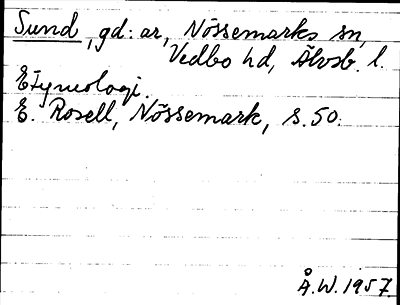 Sund, gd: ar, Nössemarks sn,
Vedbo hd, Älvsb. l.
Etymologi.
E. Rosell, Nössemark, s. 50.
Å. W. 1957.